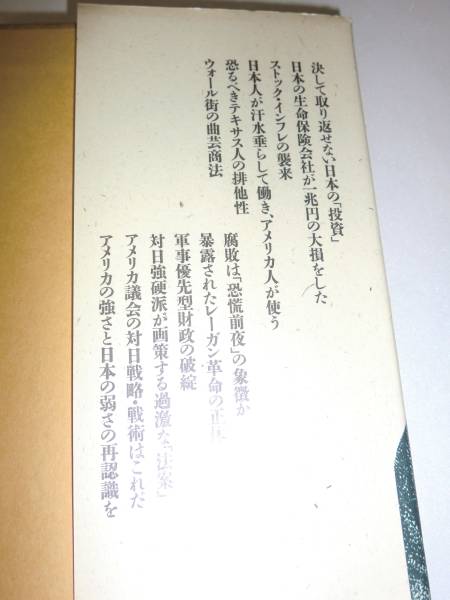 決して取り返せない日本の「投資」
日本の生命保険会社が一兆円の大損をした
ストック・インフレの襲来
日本人が汗水垂らして働き、アメリカ人が使う
恐るべきテキサス人の排他性
ウォール街の曲芸商法
腐敗は「恐慌前夜」の象徴か
暴露されたレーガン革命の正体
軍事優先型財政の破綻
対日強硬派が画策する過激な「法案」
アメリカ議会の対日戦略・戦術はこれだ
アメリカの強さと日本の弱さの再認識を